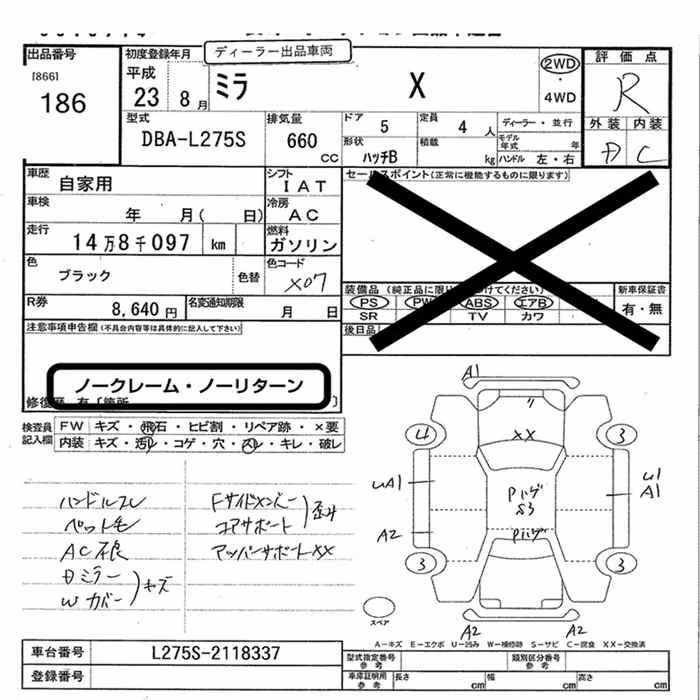 出品番号
[866]
186
初度登録年月
ディーラー出品車両
平成
23 8月
ミラ X
2WD
・
4WD
評価点
R
外装 内装
D C
型式
DBA-L275S
排気量
660
CC
ドア
5
定員
4 人
ディーラー・並行
形状
ハッチB
積載
kg
モデル年式
年
ハンドル 左・右
車歴
自家用
シフト
IAT
セールスポイント(正常に機能するものに限ります)
車検
年 月( 日)
冷房
AC
走行
14万8千097 km
燃料
ガソリン
色
ブラック
色替
色コード
X07
装備品(純正品に限り
けてください)
新車保証書
PS PW ABS エアB
有・無
SR TV カワ
R券
8,640円
名変通知期限
月 日
後日品
注意事項申告欄(不具合内容等は具体的に記入して下さい)
ノークレーム・ノーリターン
修復歴 有〔箇所 〕
検査員
記入欄
FW キズ・飛石・ヒビ割・リペア跡・×要
内装 キズ・汚れ・コゲ・穴・スレ・キレ・破レ
ハンドルスレ
ペット毛
AC不良
Dミラー
Wカバー
キズ
Fサイドメンバー
コアサポート
歪み
アッパーサポートXX
A1
リ
XX
4 3
Pハゲ
S3
Pハゲ
uA1
A2
U1
A1
3 3
A2 A2
スペア
A−キズ E−エクボ U−凹み W−補修跡 S−サビ C−腐食 XX−交換済
車台番号
L275S-2118337
登録番号
型式指定番号
参考
類別区分番号
参考
車庫証明用
参考
長さ cm
幅 cm
高さ cm